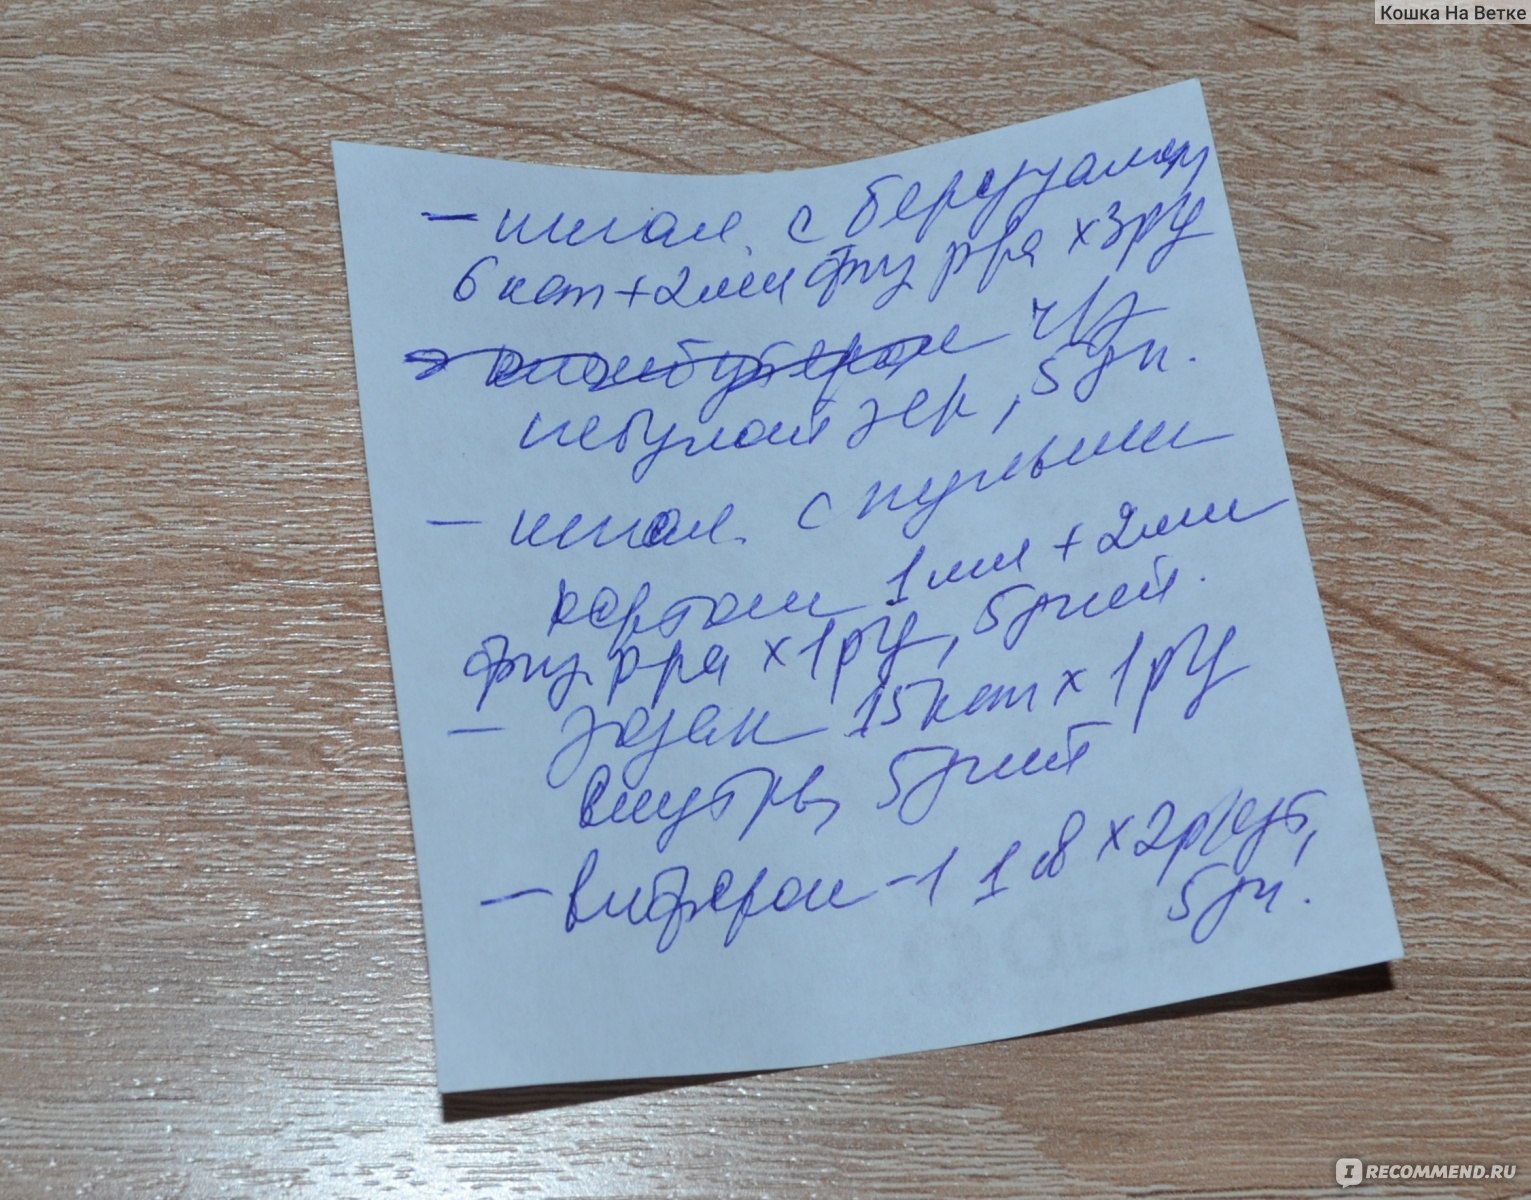 Кошка На Ветке
- ингал. с беродуалом
6 кап + 2 мл физ р-ра х 3 р/д
ч/з
небулайзер, 5 дн.
- ингал. с пульми
кортом 1 мл + 2 мл
физ. р-ра х 1 р/д, 5 дней.
- зодак 15 кап х 1 р/д
внутрь, 5 дней
- виферон-1 1 св х 2 р/сут,
5 дн.
RECOMMEND.RU